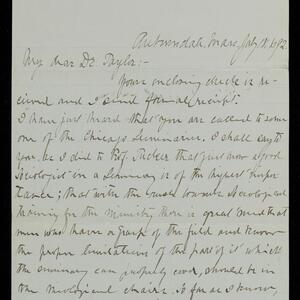 Auburndale, Mass, July 18, 1892.
My dear Dr Taylor:-
Yours enclosing check is re-
ceived and I send formal receipt.
I have just heard that you are called to some
one of the Chicago Seminaries. I shall say to
you, as I did to Prof. Tucker that just now a good
Sociologist in a Seminary is of the highest impor-
tance; that with the rush towards Sociological
training for the ministry there is great need that
men who have a grasp of the field and know
the proper limitations of the part of it which
the seminary can properly cover, should be in
our theological chairs. So far as I know,